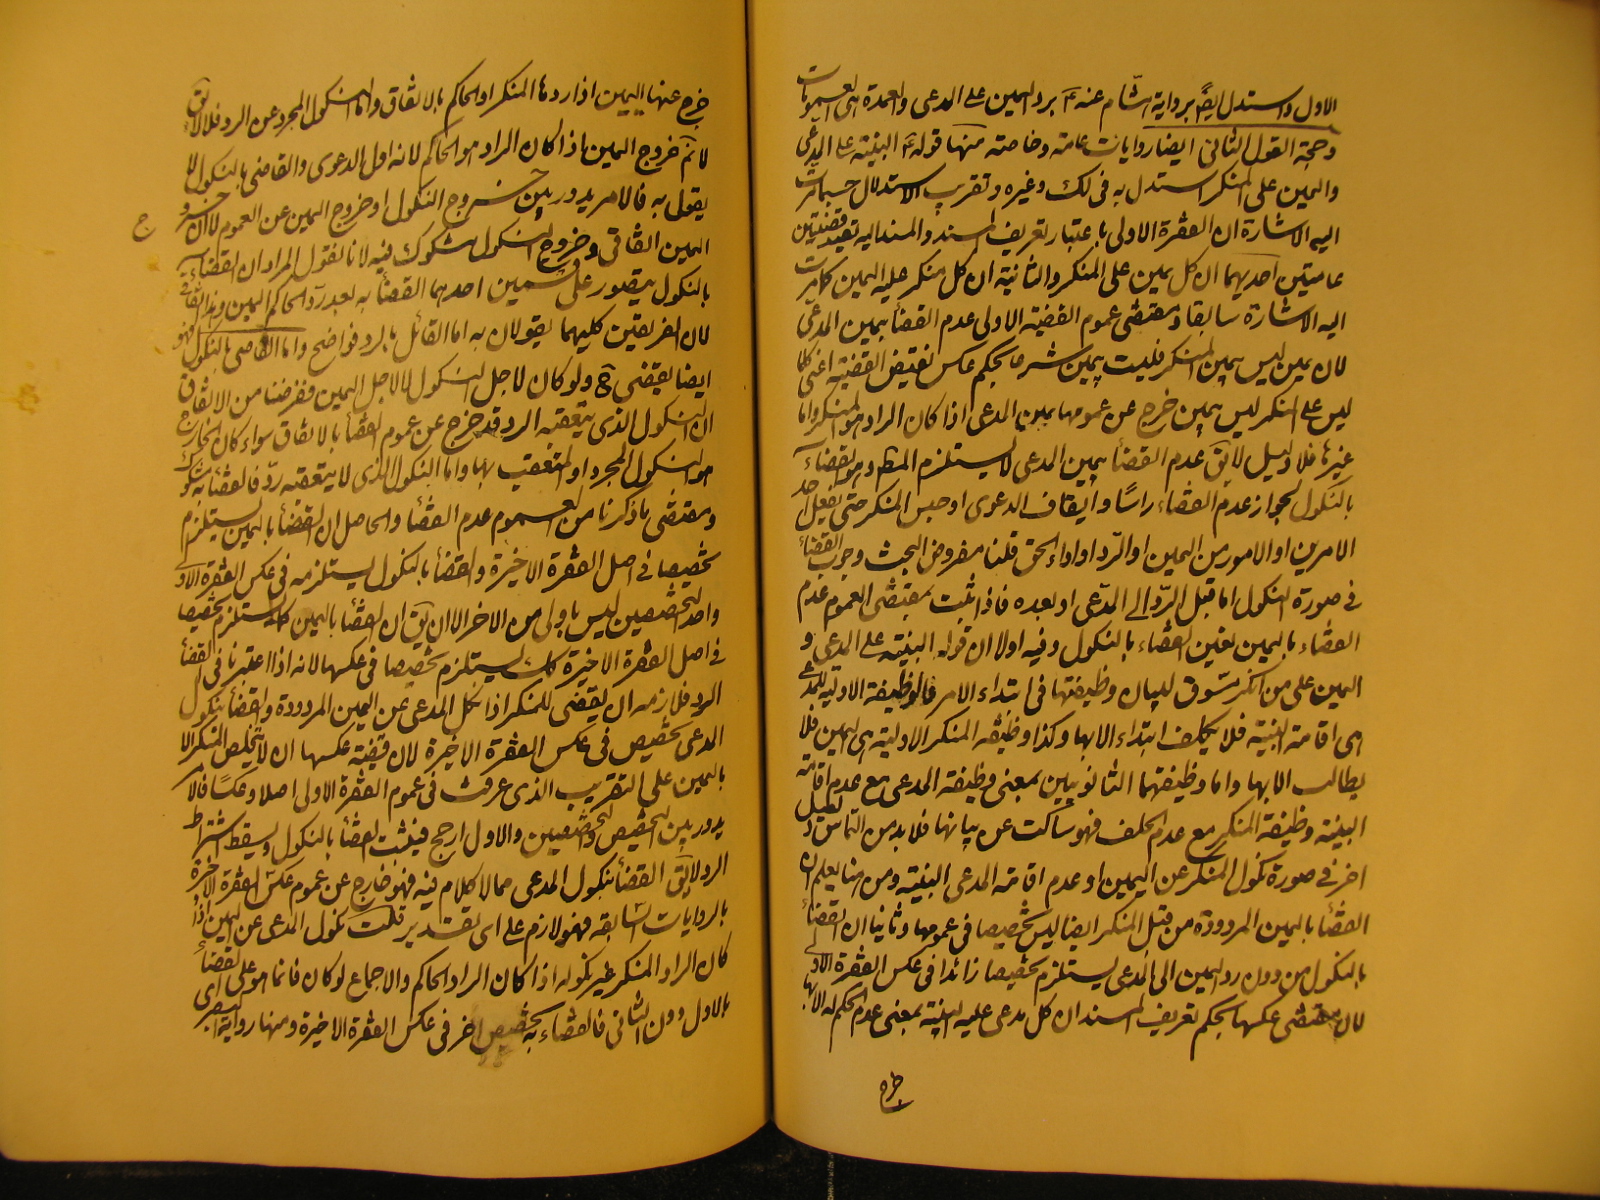 الاول واستدل ايضا برواية هشام عنه ع برد اليمين على المدعى والعمدة هى العمومات
وحجة القول الثانى ايضا روايات عامة وخاصة منها قوله ع البينة على المدعى
واليمين على المنكر استدل به فى لك وغيره وتقريب الاستدلال حسبما مرت
اليه الاشارة ان الفقرة الاولى باعتبار تعريف المسند والمسند اليه تفيد قضيتين
عامتين احديهما ان كل يمين على المنكر والثانية ان كل منكر عليه اليمين كما مرت
اليه الاشارة سابقا ومقتضى عموم القضية الاولى عدم القضأ بيمين المدعى
لان يمين ليس يمين المنكر فليت بيمين شرعا بحكم عكس نقيض القضية اعنى كلما
ليس على المنكر ليس بيمين خرج عن عمومها يمين المدعى اذا كان الراد هو المنكر واما
غيرها فلا دليل لا يق عدم القضأ بيمين المدعى لا يستلزم المط وهو القضاء
بالنكول لجواز عدم القضاء راسًا وايقاف الدعوى او حبس المنكر حتى يفعل احد
الامرين او الامور من اليمين او الرد او اداء الحق قلنا مفروض البحث وجوب القضاء
فى صورة النكول اما قبل الردّ الى المدّعى او بعده فاذا ثبت بمقتضى العموم عدم
القضاء باليمين تعين القضاء بالنكول وفيه اولا ان قوله البينة على المدعى و
اليمين على من انكر مسّوق لبيان وظيفتها فى ابتداء الامر فالوظيفة الاولية للمدعى
هى اقامة البينة فلا يكلف ابتداء الا بها وكذا وظيفة المنكر الاولية هى اليمين فلا
يطالب الا بها واما وظيفتهما الثانويتين بمعنى وظيفة المدعى مع عدم اقامة
البينة وظيفة المنكر مع عدم الحلف فهو ساكت عن بيانها فلا بد من التماس دليل
اخر فى صورة نكول المنكر عن اليمين او عدم اقامة المدعى البينة ومن هنا يعلم ان
القضأ باليمين المردودة من قبل المنكر ايضا ليس تخصيصا فى عمومها وثانيا ان القضأ
بالنكول من دون رد اليمين الى المدعى يستلزم تخصيصا زائدا فى عكس الفقرة الاولى
لان مقتضى عكسها بحكم تعريف المسند ان كل مدعى عليه البينة بمعنى عدم الحكم له الا بها
خرج
خرج عنها اليمين اذا ردها المنكر او الحاكم بالاتفاق واما النكول المجرد عن الرد فلا لا يق
لا نم خروج اليمين اذا كان الراد هو الحاكم لانه اول الدعوى والقاضى بالنكول لا
يقول به فالامر يدور بين خروج النكول او خروج اليمين عن العموم لا ان خروج
اليمين اتفاقى وخروج النكول مشكوك فيه لانا نقول المراد ان القضاء
بالنكول يتصور على قسمين احدهما القضأ به بعد رد الحاكم اليمين وهذا اتفاقى
لان الفريقين كليهما يقولان به اما القائل بالرد فواضح واما القاضى بالنكول فهو
ايضا يقضى ح ولو كان لاجل النكول لا لاجل اليمين ففرضنا من الاتفاق
ان النكول الذى يتعقبه الرد قد خرج عن عموم القضأ بالاتفاق سواء كان الخارج
هو النكول المجرد او المتعقب بها واما النكول الذى لا يتعقبه ردّ فالقضأ به مشكوك
ومقتضى ما ذكرنا من العموم عدم القضأ والحاصل ان القضأ باليمين يستلزم
تخصيصا فى اصل الفقرة الاخيرة والقضأ بالنكول يستلزمه فى عكس الفقرة الاولى
واحد التخصيصين ليس باولى من الاخر الا ان يق ان القضأ باليمين كما يستلزم تخصيصا
فى اصل الفقرة الاخيرة كك يستلزم تخصيصا فى عكسها لانه اذا اعتبرنا فى القضأ
الرد فلازمه ان يقضى للمنكر اذا نكل المدعى عن اليمين المردودة والقضأ بنكول
المدعى تخصيص فى عكس الفقرة الاخيرة لان قضية عكسها ان لا يتخلص المنكر الا
باليمين على التقريب الذى عرفت فى عموم الفقرة الاولى اصلا وعكسًا فالامر
يدور بين التخصيص والتخصيصين والاول ارجح فيثبت القضأ بالنكول ويسقط اشتراط
الرد لا يق القضأ بنكول المدعى مما لا كلام فيه فهو خارج عن عموم عكس الفقرة الاخيرة
بالروايات السابقه فهو لازم على اى تقدير قلت نكول المدعى عن اليمين اذا
كان الراد المنكر غير نكوله اذا كان الراد الحاكم والاجماع لو كان فانما هو على القضأ
بالاول دون الثانى فالقضاء به تخصيص اخر فى عكس الفقرة الاخيرة ومنها رواية ابى بصير
ج